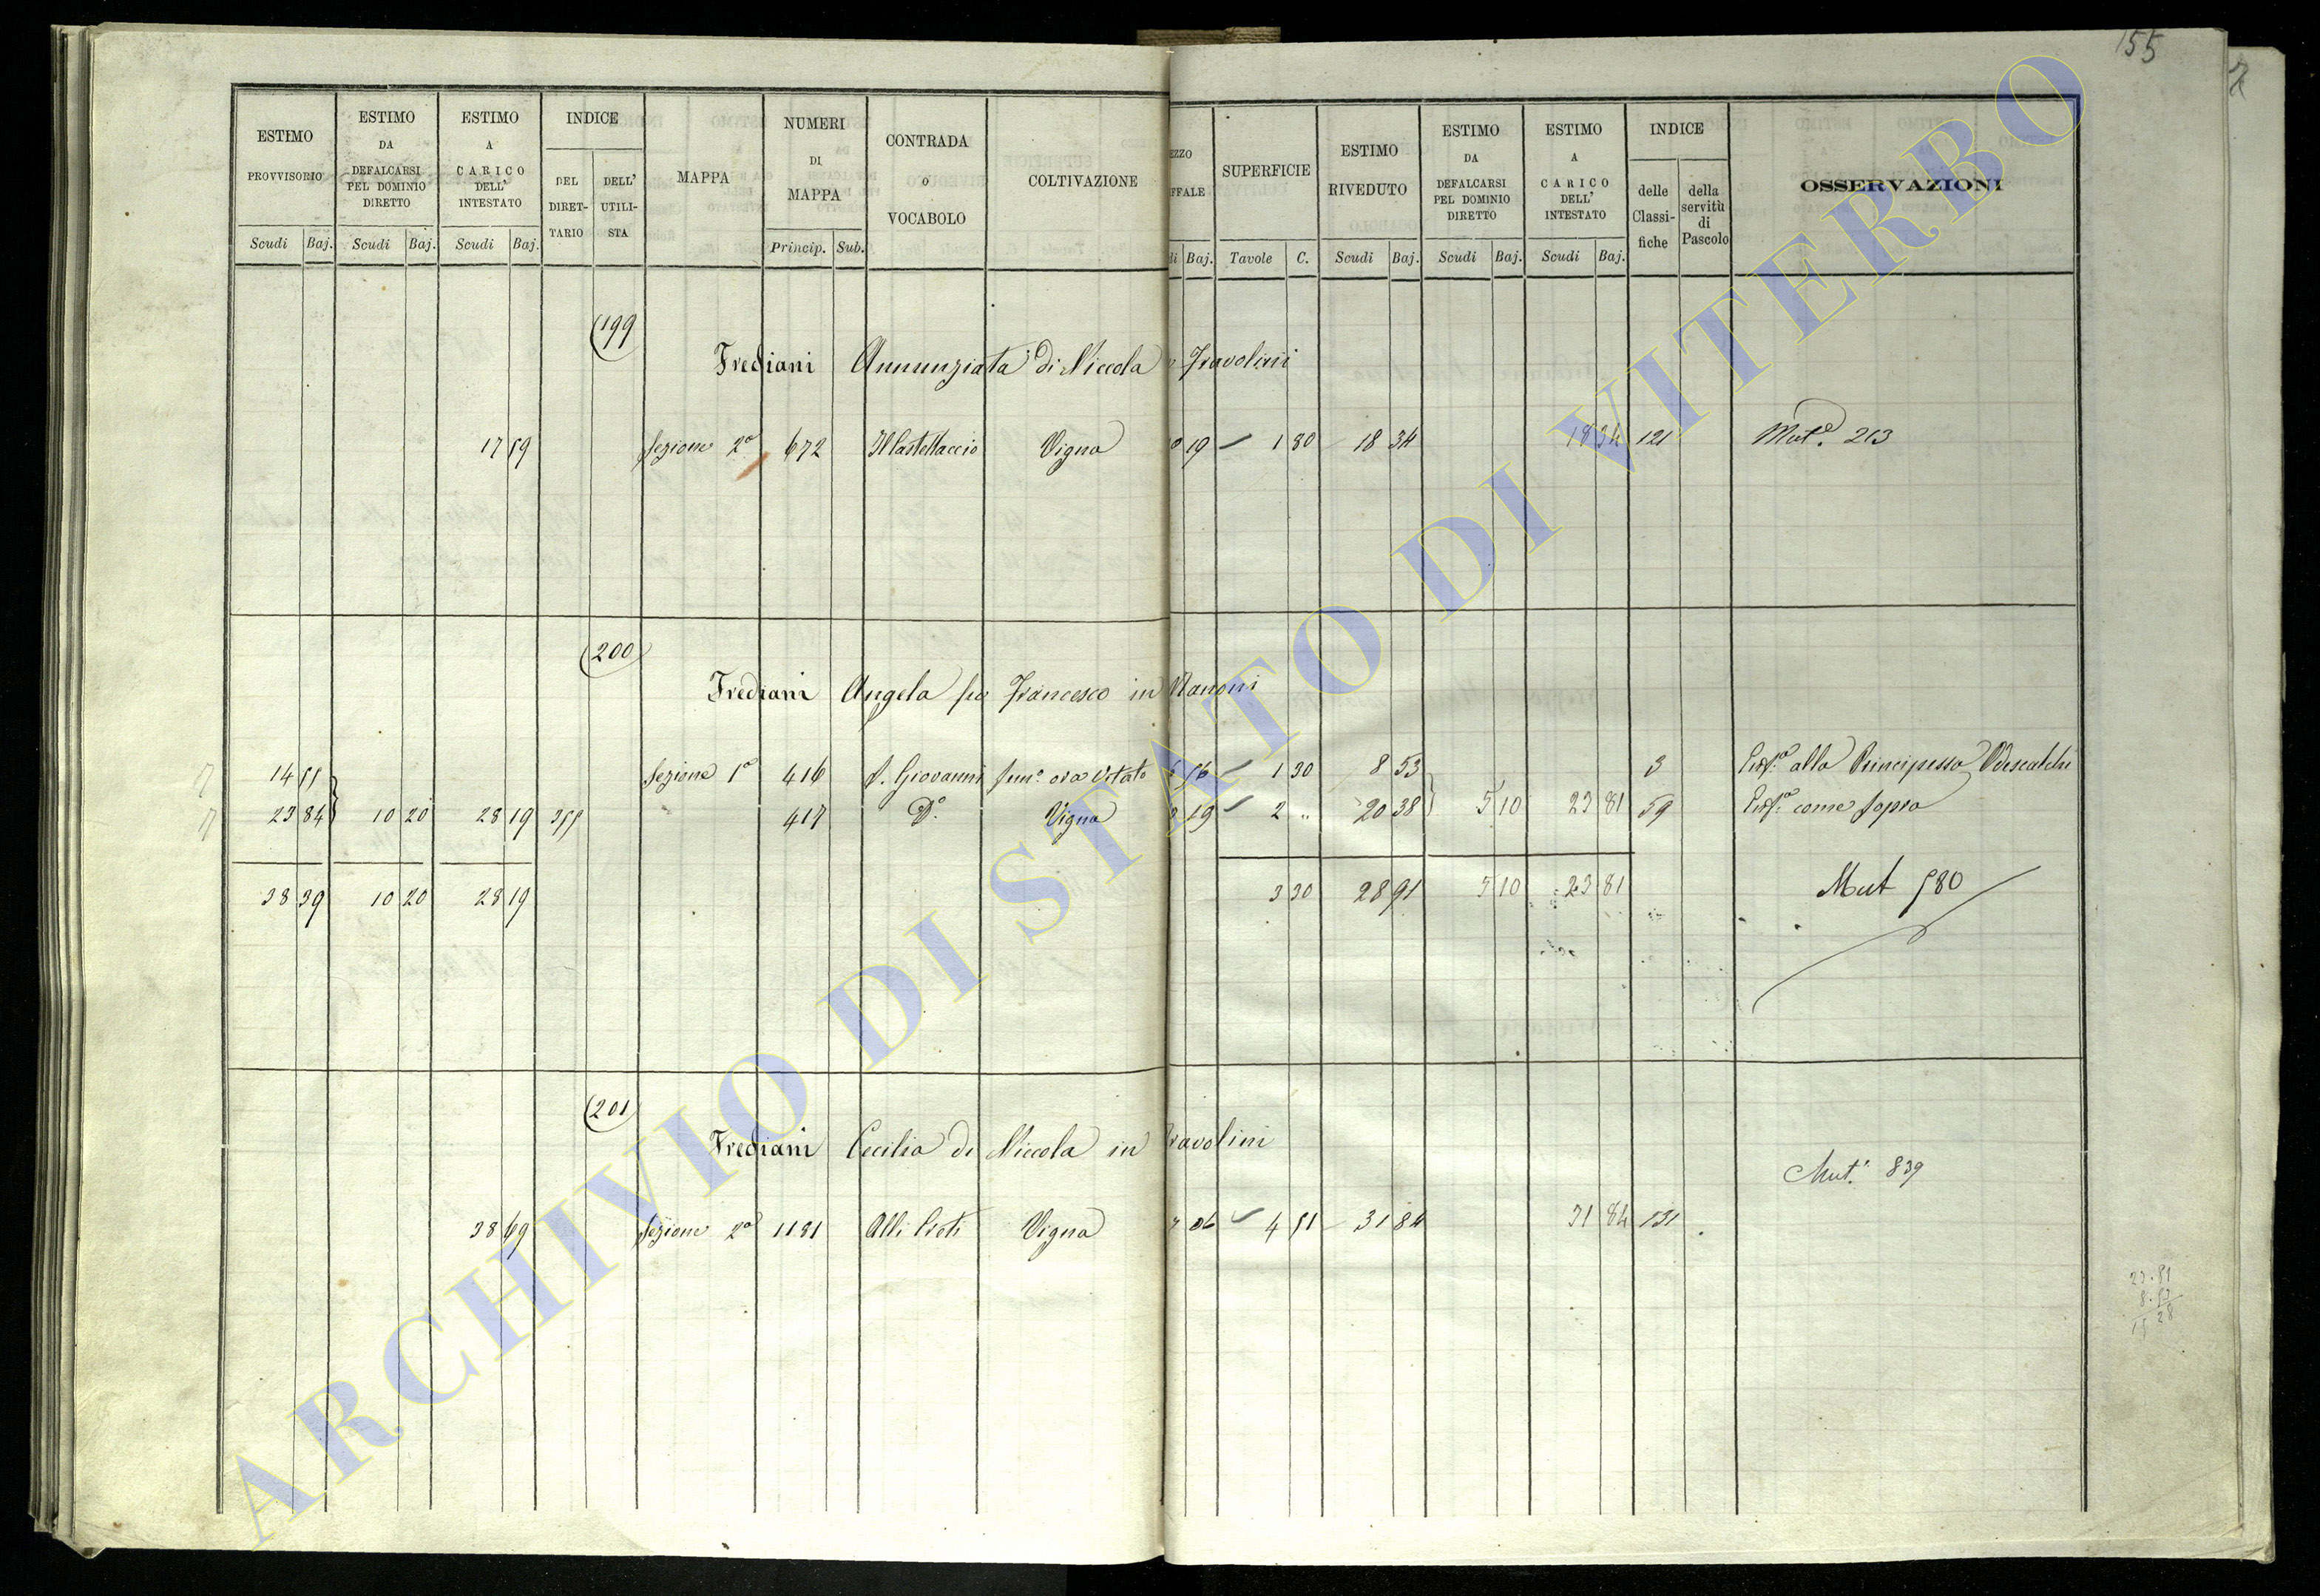 155
ESTIMO PROVVISORIO Scudi Baj.
ESTIMO DA DEFALCARSI PEL DOMINIO DIRETTO Scudi Baj.
ESTIMO A CARICO DELL' INTESTATO Scudi Baj.
INDICE DEL DIRET- TARIO DELL' UTILI- STA
MAPPA
NUMERI DI MAPPA Princip. Sub.
CONTRADA o VOCABOLO
COLTIVAZIONE
EZZO FFALE di Baj.
SUPERFICIE Tavole C.
ESTIMO RIVEDUTO Scudi Baj.
ESTIMO DA DEFALCARSI PEL DOMINIO DIRETTO Scudi Baj.
ESTIMO A CARICO DELL' INTESTATO Scudi Baj.
INDICE delle Classi- fiche della servitù di Pascolo
OSSERVAZIONI
199
Frediani Annunziata di Niccola Travolini
17 59 Sezione 2a 672 Il Castellaccio Vigna 19 1 80 18 34 18 34 121 Muta. 213
200
Frediani Angela fu Francesco in Nanoni
14 55 Sezione 1a 416 S. Giovanni Semo. ora Vitato 56 1 30 8 53 3 alla Principessa Odescalchi
23 84 10 20 28 19 355 417 Do. Vigna 19 2 " 20 38 5 10 23 81 59 come sopra
38 39 10 20 28 19 3 30 28 91 5 10 23 81 Mut 580
201
Frediani Cecilia di Niccola in ravolini
Mut. 839
38 69 Sezione 2a 1181 Alli Preti Vigna 06 4 51 31 84 31 84 131
23.81
8.53
15 28
ARCHIVIO DI STATO DI VITERBO